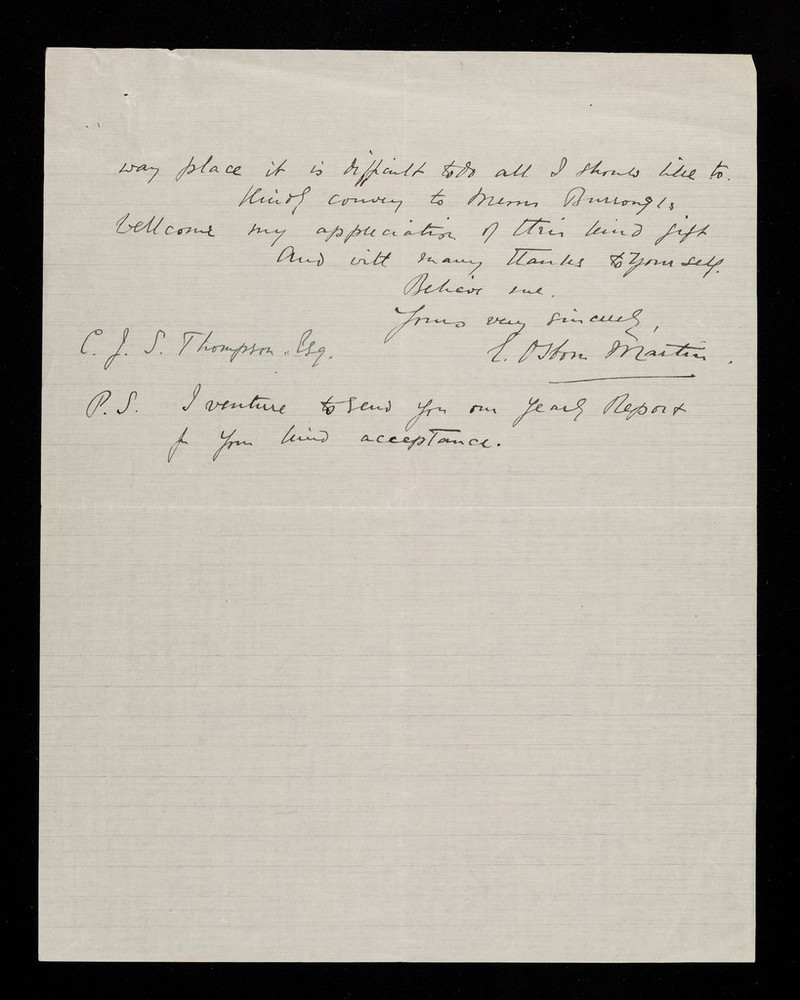 way place it is difficult to do all I should like to.
Kindly convey to Messrs Burroughs
Wellcome my appreciation of their kind gift
And with many thanks to yourself.
Believe me.
Yours very sincerely,
C. J. S. Thompson. Esq.
E. Osborn Martin.
P.S. I venture to send you our yearly Report
for your kind acceptance.